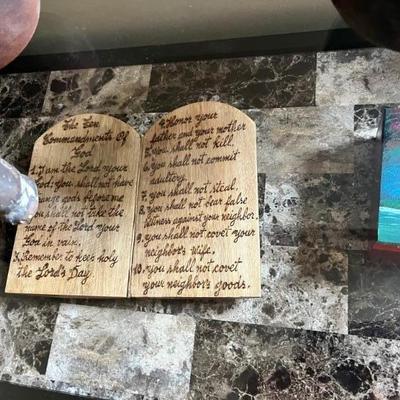 The Ten
Commandments Of
God
1. I am the Lord your
God: you shall not have
strange gods before me
you shall not take the
name of the Lord your
God in vain.
3. Remember to keep holy
the Lord's Day
4. Honor your
father and your mother
5. You shall not kill.
6. you shall not commit
adultery.
7. you shall not steal.
8. you shall not bear false
witness against your neighbor.
9. you shall not covet your
neighbor's wife.
10. you shall not covet
your neighbor's goods.